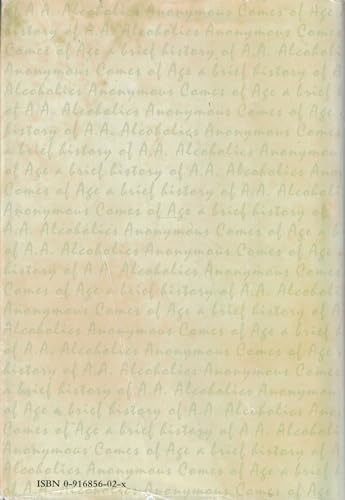 of A.A. Alcoholics Anonymous Comes of Age
history of A.A. Alcoholics Anonymous Comes
Comes of Age a brief history of A.A. Alcoholi
Anonymous Comes of Age a brief history of
Alcoholics Anonymous Comes of Age a brief
of A.A. Alcoholics Anonymous Comes of Age
history of A.A. Alcoholics Anonymous Comes
a brief history of A.A. Alcoholics Anonymous
of Age a brief history of A.A. Alcoholics
Comes of Age a brief history of A.A. Alcoholi
Anonymous Comes of Age a brief history of
A.A. Alcoholics Anonymous Comes of Age a
of A.A. Alcoholics Anonymous Comes of Age
history of A.A. Alcoholics Anonymous Comes
Comes of Age a brief history of A.A. Alcoholi
Anonymous Comes of Age a brief history of
Alcoholics Anonymous Comes of Age a brief
of A.A. Alcoholics Anonymous Comes of Age
history of A.A. Alcoholics Anonymous Comes
a brief history of A.A. Alcoholics Anonymous
of Age a brief history of A.A. Alcoholics
Comes of Age a brief history of A.A. Alcoholi
Anonymous Comes of Age a brief history of
Alcoholics Anonymous Comes of Age a brief
ISBN 0-916856-02-x
of A.A. Alcoholics Anonymous Comes of Age